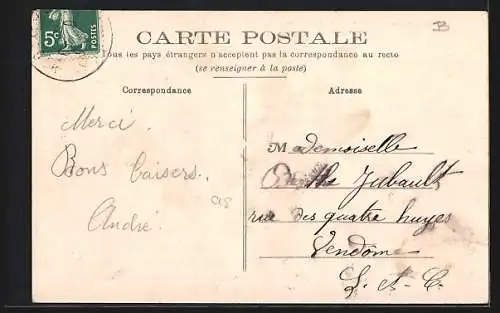 5c
POSTES
B
CARTE POSTALE
Tous les pays étrangers n'acceptent pas la correspondance au recto
(se renseigner à la poste)
Correspondance
Merci.
Bons baisers.
CS
André.
Adresse
Mademoiselle
Jubault
rue des quatre huyes
Vendôme
L.-et-C.